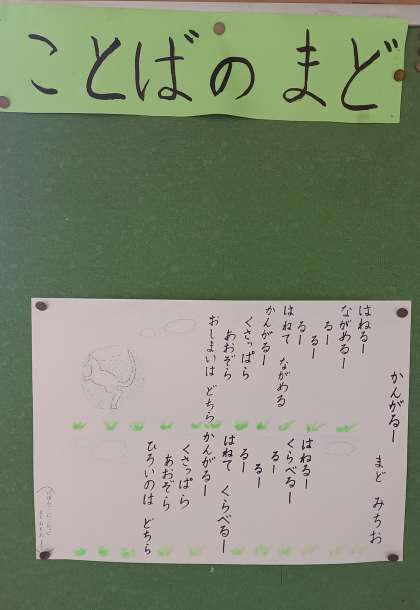 ことばのまど
かんがるー　まど　みちお
はねるー
ながめるー
るー
るー
るー
はねて　ながめる
かんがるー
くさっぱら
あおぞら
おしまいは　どちら
はねるー
くらべるー
るー
るー
るー
はねて　くらべるー
かんがるー
くさっぱら
あおぞら
ひろいのは　どちら